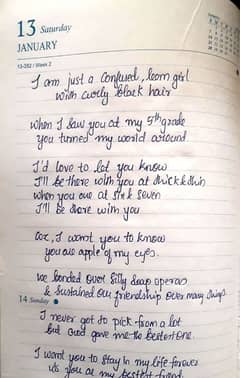 13 Saturday
JANUARY
13-352 / Week 2
I am just a confused, teen girl
with curly black hair
When I saw you at my 5th grade
you turned my world around
I'd love to let you know
I'll be there with you at thick & thin
when you are at six & seven
I'll be there with you
Coz, I want you to know
you are apple of my eyes.
We bonded over silly soap operas
& sustained our friendship over many things
14 Sunday
I never got to pick from a lot
but God gave me the bestest one.
I want you to stay in my life forever
as you are my bestest friend.